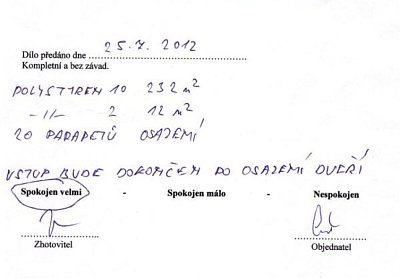 Dílo předáno dne 25.7.2012
Kompletní a bez závad.
POLYSTIREN 10 232 m²
-//- 2 12 m²
20 PARAPETŮ OSAZENÍ
VSTUP BUDE DOKONČEN PO OSAZENÍ DVEŘÍ
Spokojen velmi - Spokojen málo - Nespokojen
Zhotovitel Objednatel